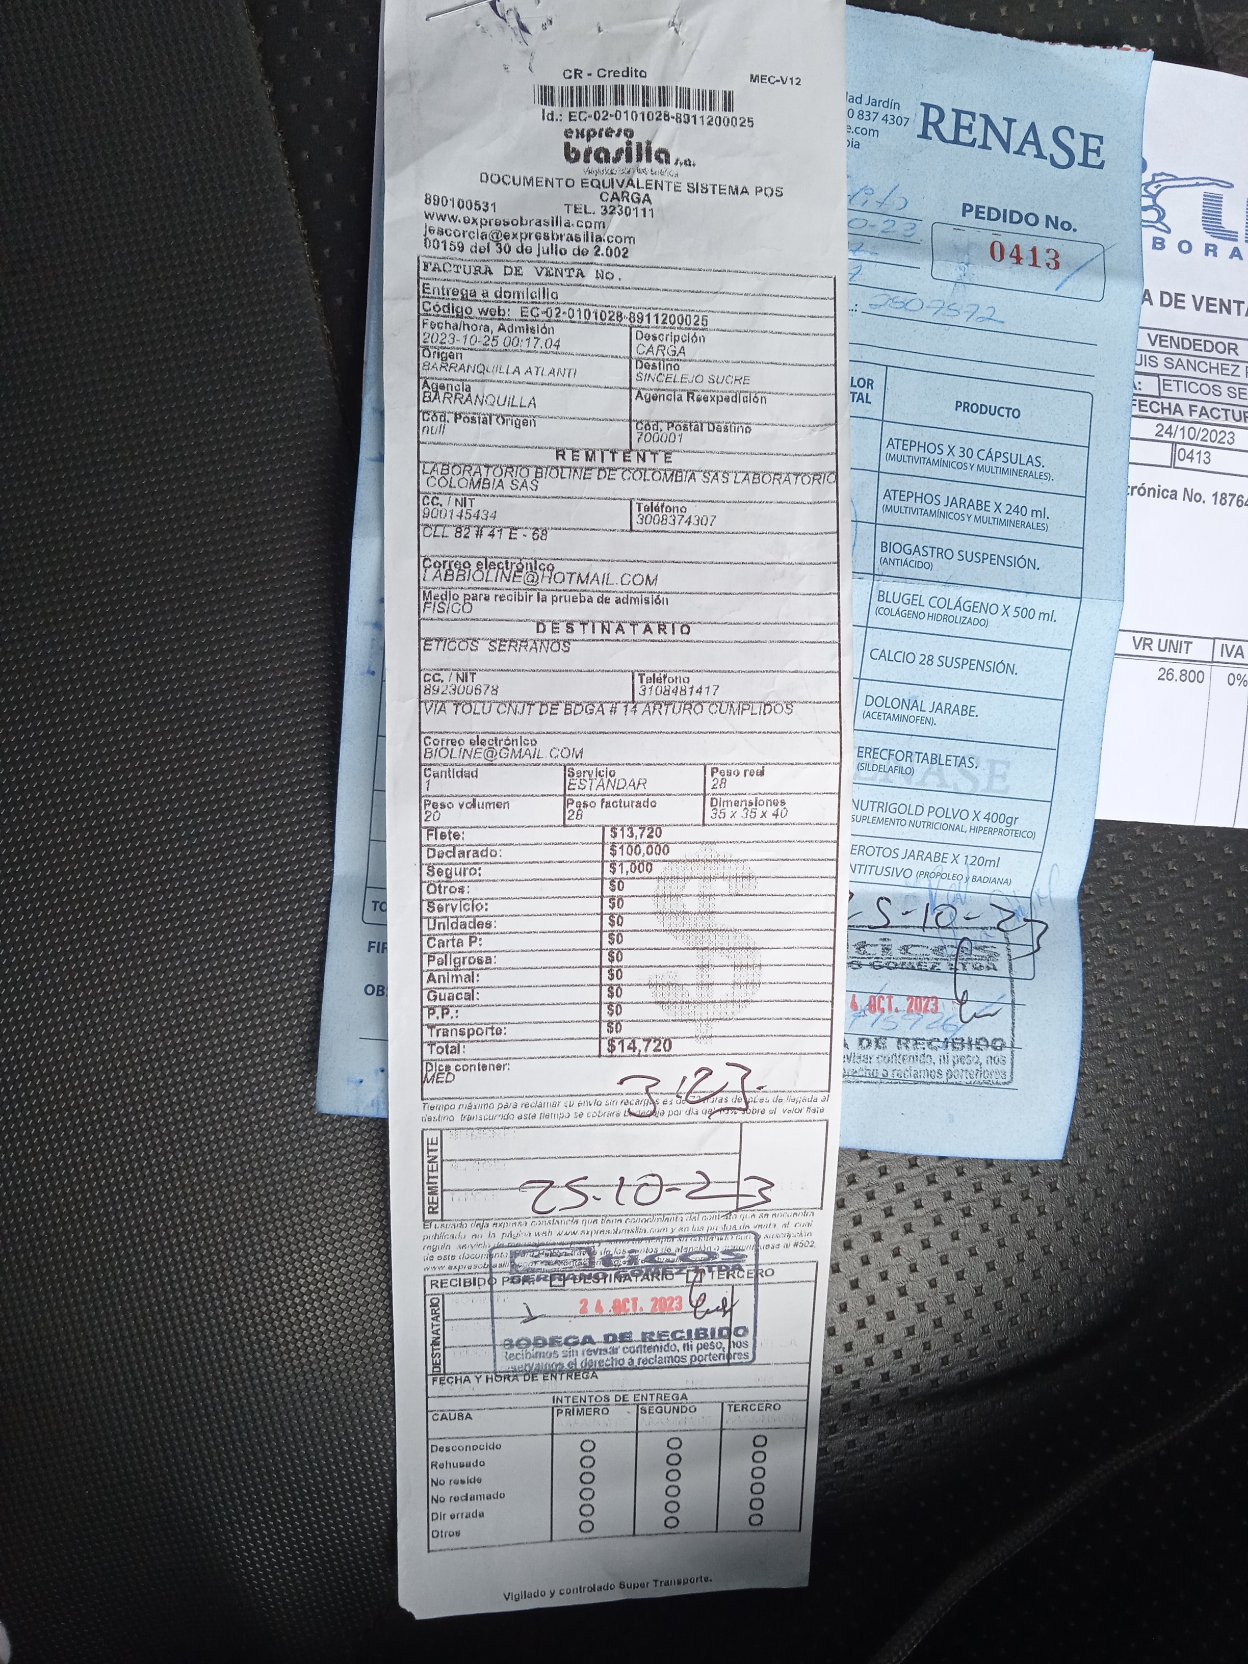 CR - Credito
MEC-V12
Id.: EC-02-0101028-8911200025
expreso
brasilia s.a.
DOCUMENTO EQUIVALENTE SISTEMA POS
CARGA
890100531
TEL. 3230111
www.expresobrasilia.com
jescorcia@expresbrasilia.com
00159 del 30 de julio de 2.002
FACTURA DE VENTA No.
Entrega a domicilio
Código web: EC-02-0101028-8911200025
Fecha/hora, Admisión
2023-10-25 00:17.04
Descripción
CARGA
Origen
BARRANQUILLA ATLANTI
Destino
SINCELEJO SUCRE
Agencia
BARRANQUILLA
Agencia Reexpedición
Cód. Postal Origen
null
Cód. Postal Destino
700001
REMITENTE
LABORATORIO BIOLINE DE COLOMBIA SAS LABORATORIO
COLOMBIA SAS
CC. / NIT
900145434
Teléfono
3008374307
CLL 82 # 41 E - 68
Correo electrónico
LABBIOLINE@HOTMAIL.COM
Medio para recibir la prueba de admisión
FISICO
DESTINATARIO
ETICOS SERRANOS
CC. / NIT
892300678
Teléfono
3108481417
VIA TOLU CNJT DE BDGA # 14 ARTURO CUMPLIDOS
Correo electrónico
BIOLINE@GMAIL.COM
Cantidad
1
Servicio
ESTANDAR
Peso real
28
Peso volumen
20
Peso facturado
28
Dimensiones
35 x 35 x 40
Flete: $13,720
Declarado: $100,000
Seguro: $1,000
Otros: $0
Servicio: $0
Unidades: $0
Carta P: $0
Peligrosa: $0
Animal: $0
Guacal: $0
P.P.: $0
Transporte: $0
Total: $14,720
Dice contener:
MED
3:23.
Tiempo máximo para reclamar su envío sin recargos es de horas después de llegada al
destino, transcurrido este tiempo se cobrará bodegaje por día del sobre el valor flete
REMITENTE
25-10-23
El usuario deja expresa constancia que tiene conocimiento del contrato que se encuentra
publicado en la página web www.expresobrasilia.com y en los puntos de venta, el cual
RECIBIDO POR: DESTINATARIO TERCERO
eticos
SERRANO GOMEZ LTDA
24 OCT. 2023
BODEGA DE RECIBIDO
Recibimos sin revisar contenido, ni peso, nos
reservamos el derecho a reclamos porteriores
DESTINATARIO
FECHA Y HORA DE ENTREGA
INTENTOS DE ENTREGA
CAUSA PRIMERO SEGUNDO TERCERO
Desconocido
Rehusado
No reside
No reclamado
Dir errada
Otros
Vigilado y controlado Super Transporte.
ad Jardín
0 837 4307
e.com
bia
RENASE
PEDIDO No.
0413
2507592
LOR
TAL
PRODUCTO
ATEPHOS X 30 CÁPSULAS.
(MULTIVITAMÍNICOS Y MULTIMINERALES).
ATEPHOS JARABE X 240 ml.
(MULTIVITAMÍNICOS Y MULTIMINERALES)
BIOGASTRO SUSPENSIÓN.
(ANTIÁCIDO)
BLUGEL COLÁGENO X 500 ml.
(COLÁGENO HIDROLIZADO)
CALCIO 28 SUSPENSIÓN.
DOLONAL JARABE.
(ACETAMINOFEN).
ERECFOR TABLETAS.
(SILDELAFILO)
NUTRIGOLD POLVO X 400gr
SUPLEMENTO NUTRICIONAL, HIPERPROTEICO)
EROTOS JARABE X 120ml
NTITUSIVO (PROPOLEO y BADIANA)
25-10-23
ticos
O GOMEZ LTDA
4 OCT. 2023
A DE RECIBIDO
evisar contenido, ni peso, nos
erecho a reclamos porteriores
TO
FIR
OB
BORA
A DE VENTA
VENDEDOR
UIS SANCHEZ
ETICOS SE
FECHA FACTUR
24/10/2023
0413
rónica No. 1876
VR UNIT
IVA
26.800
0%